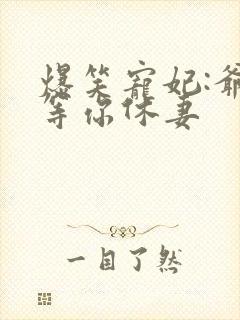 爆笑寵妃:爺
等你休妻
一目了然